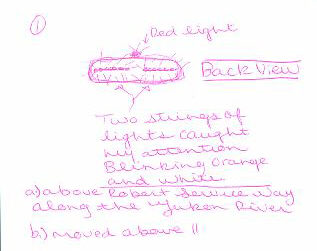 ①
Red light
Back View
Two strings of
lights caught
my attention
Blinking orange
and white.
a) above Robert Service Way
along the Yukon River
b) moved above 11